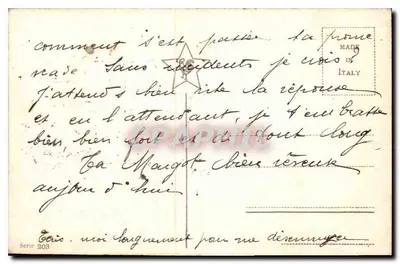 comment s'est passée ta prome
nade. Sans incidents je crois?
MADE
IN
ITALY
J'attends bien vite ta réponse
et en l'attendant, je t'embrasse
bien, bien fort et de tout long
Ta Margot, bien rêveuse
aujourd'hui
Ecris-moi longuement pour me désennuyer
Serie 203